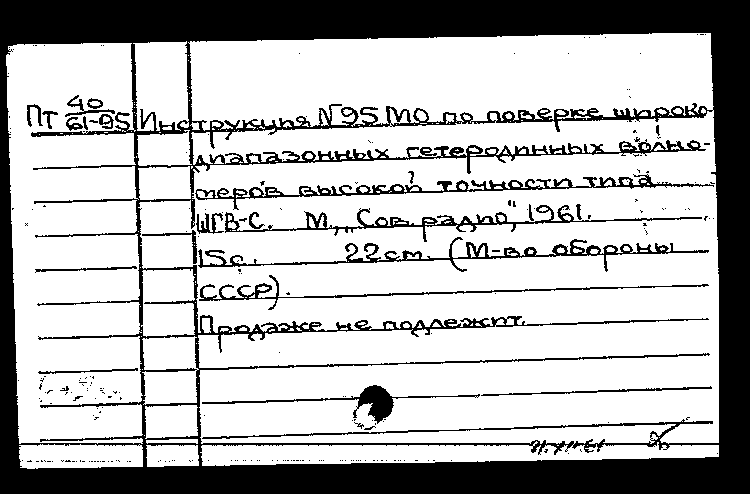 Пт 40/61-95 Инструкция №95 МО по поверке широко-
диапазонных гетеродинных волно-
меров высокой точности типа
ШГВ-С. М., „Сов. радио", 1961.
15с. 22см. (М-во обороны
СССР).
Продаже не подлежит.